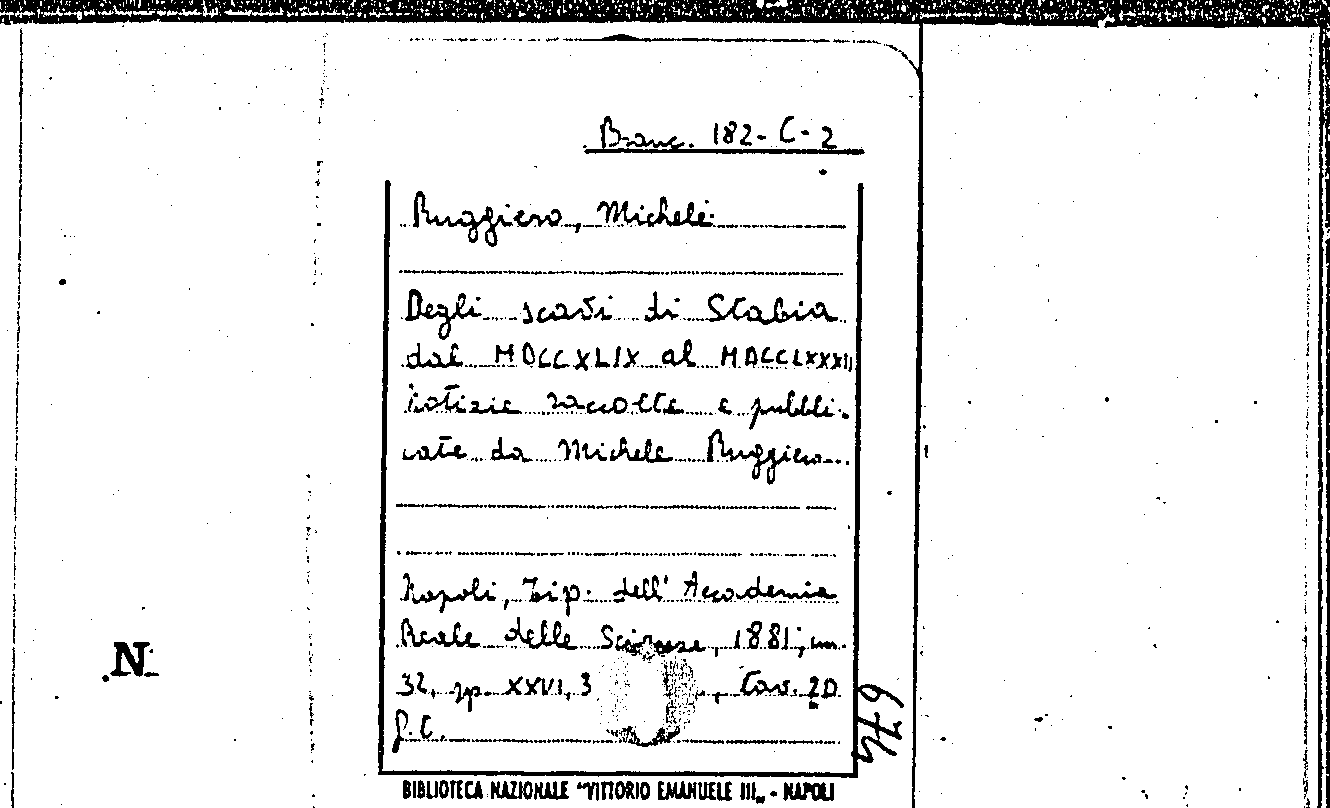 Branc. 182-C-2
Ruggiero, Michele
Degli scavi di Stabia
dal MDCCXLIX al MDCCLXXXII
notizie raccolte e pubbli-
cate da Michele Ruggiero.
Napoli, Tip. dell'Accademia
Reale delle Scienze, 1881; cm.
32, pp. XXVI, 3 , tav. 20
674
N
BIBLIOTECA NAZIONALE "VITTORIO EMANUELE III„ - NAPOLI